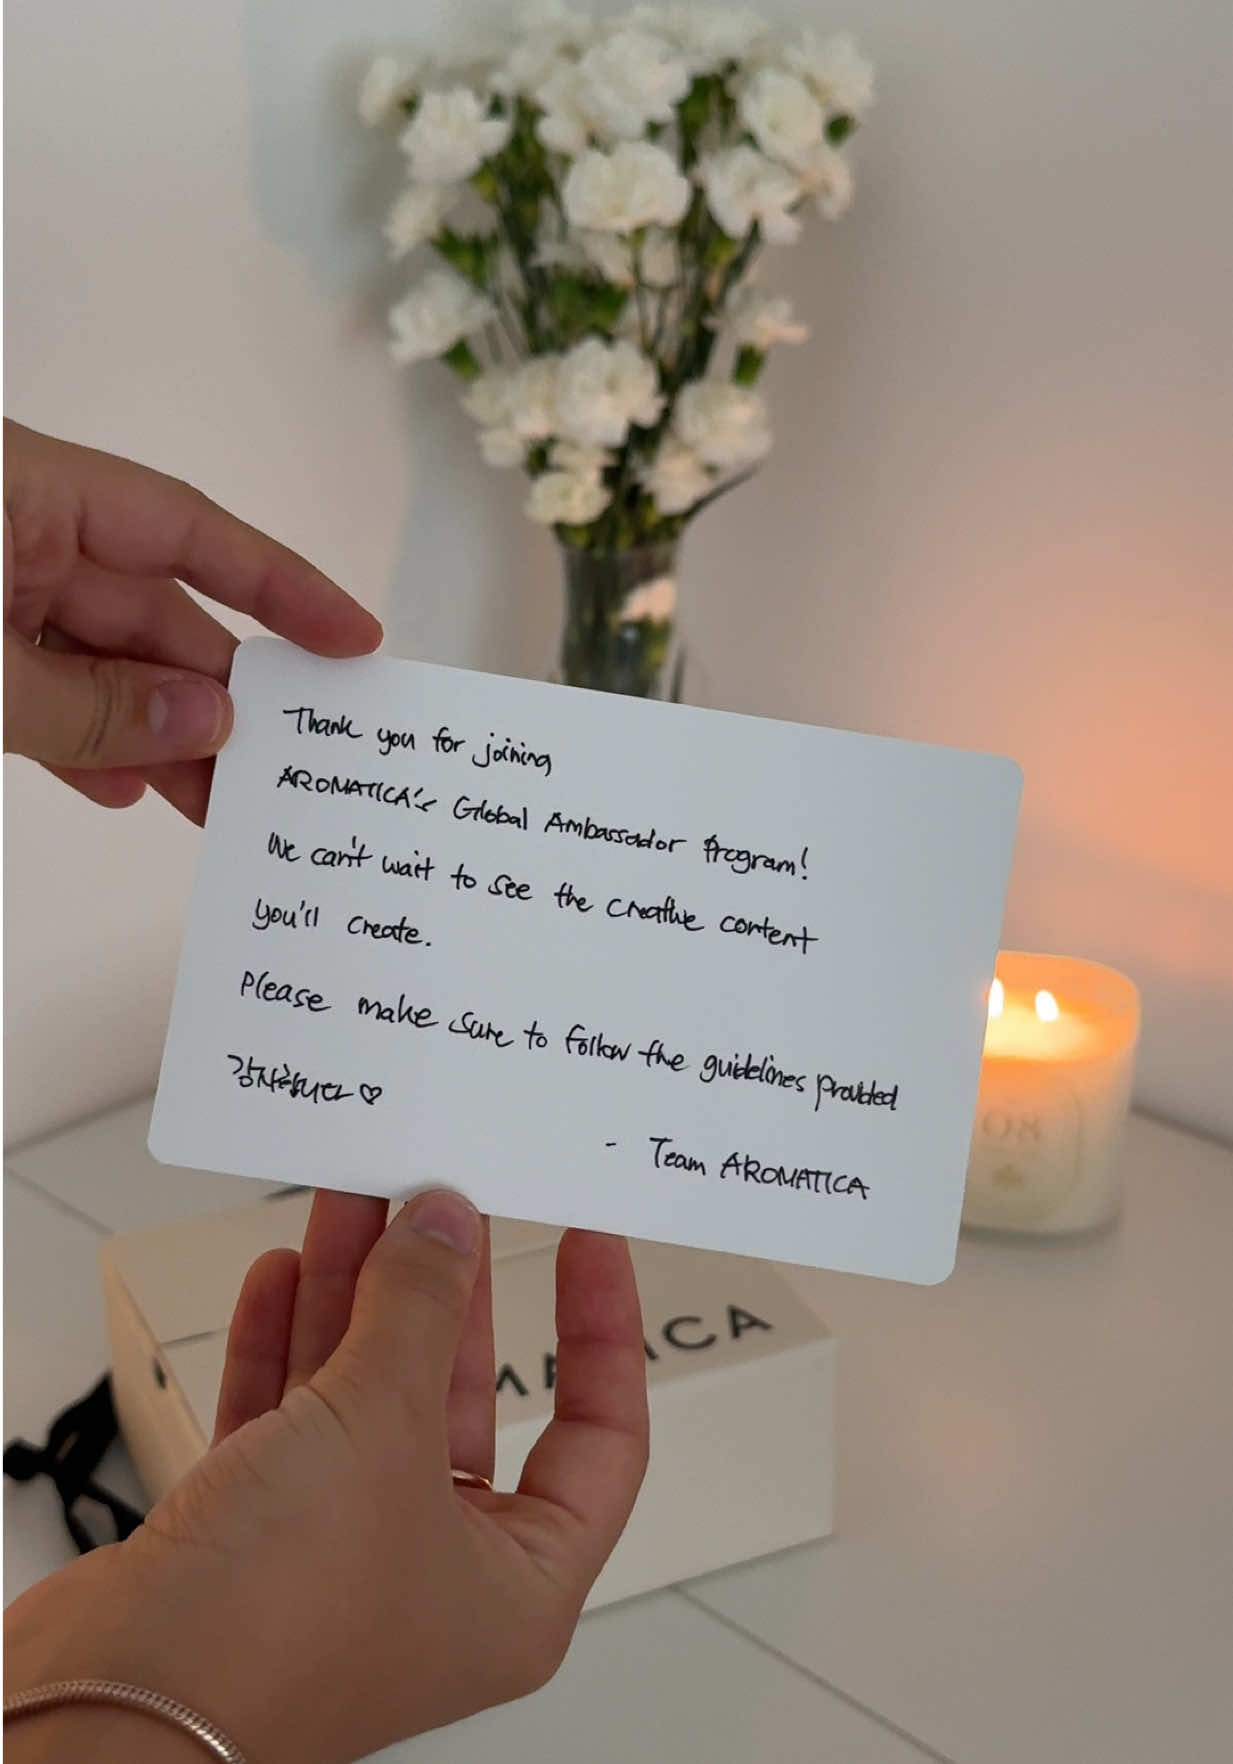 Thank you for joining
AROMATICA's Global Ambassador Program!
We can't wait to see the creative content
you'll create.
Please make sure to follow the guidelines provided
감사합니다 ♡
- Team AROMATICA
08
MATICA